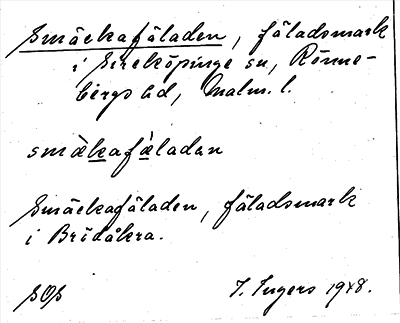 Smäckafäladen, fäladsmark
i Sireköpinge sn, Rönne-
bergs hd, Malm. l.
smàkafàladan
Smäckafäladen, fäladsmark
i Bridåkra.
SOS I. Ingers 1948.